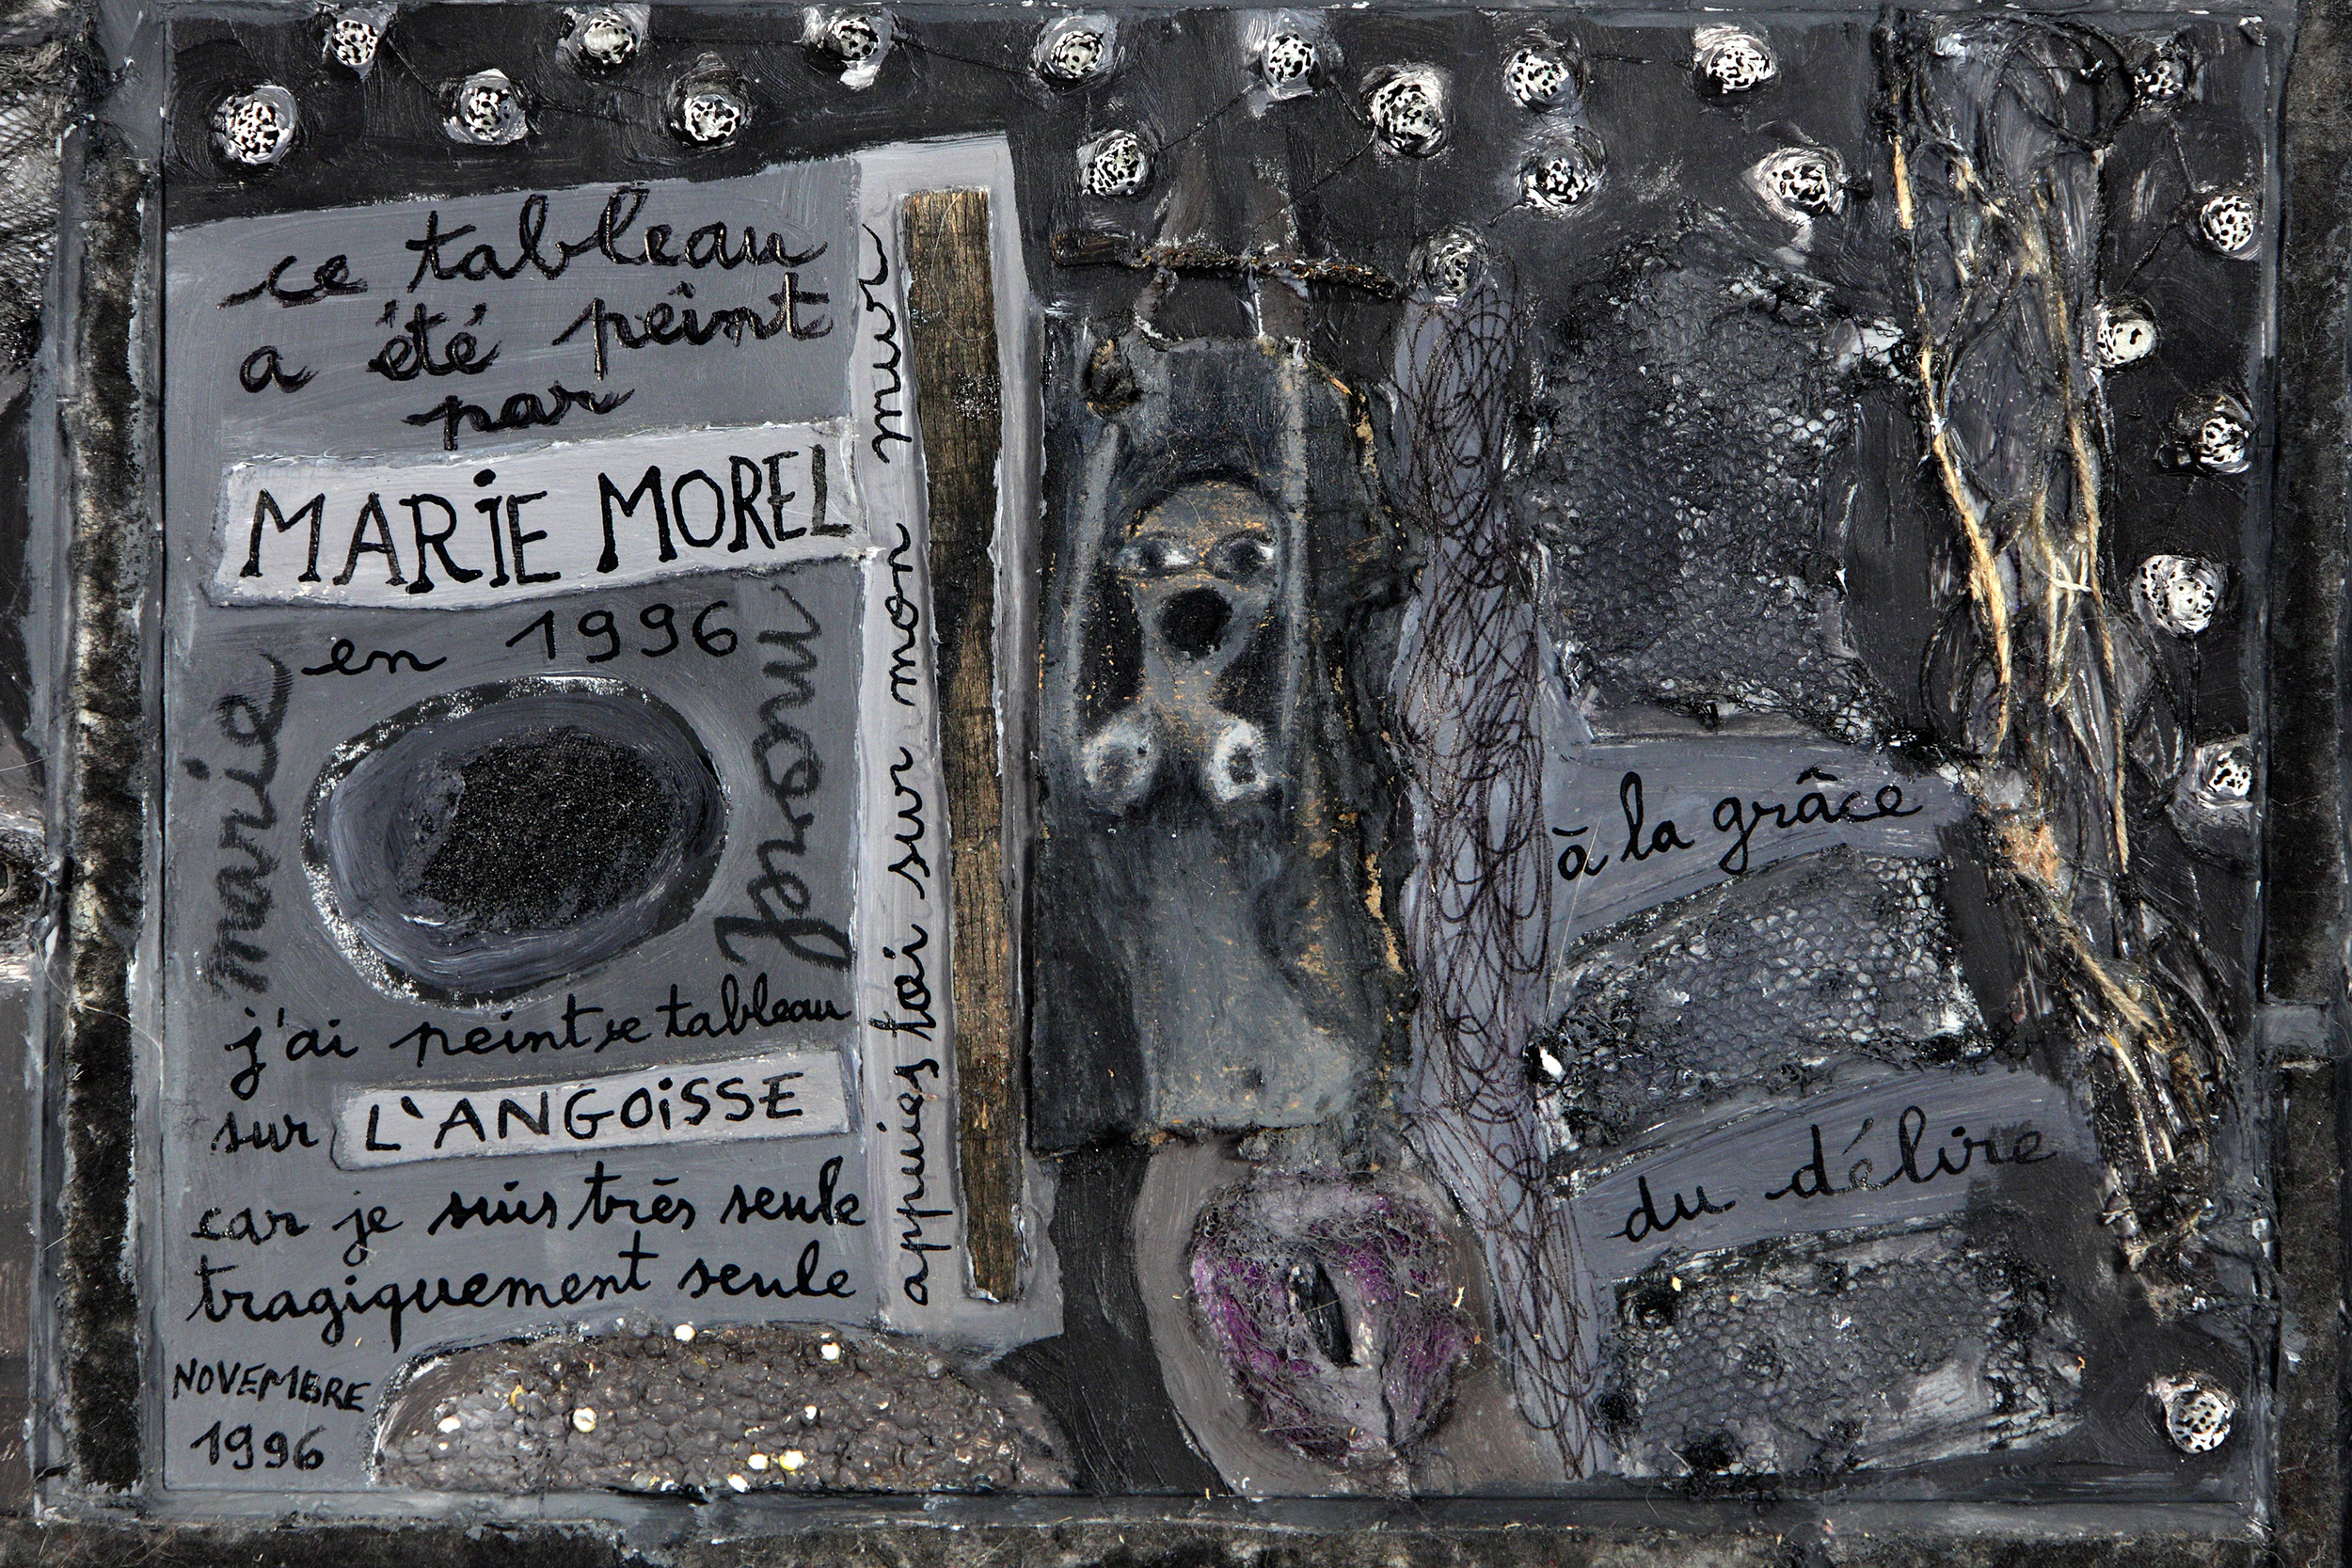 ce tableau
a été peint
par
MARIE MOREL
en 1996
marie
morel
j'ai peint ce tableau
sur L'ANGOISSE
car je suis très seule
tragiquement seule
NOVEMBRE
1996
appuies toi sur mon mur
à la grâce
du délire